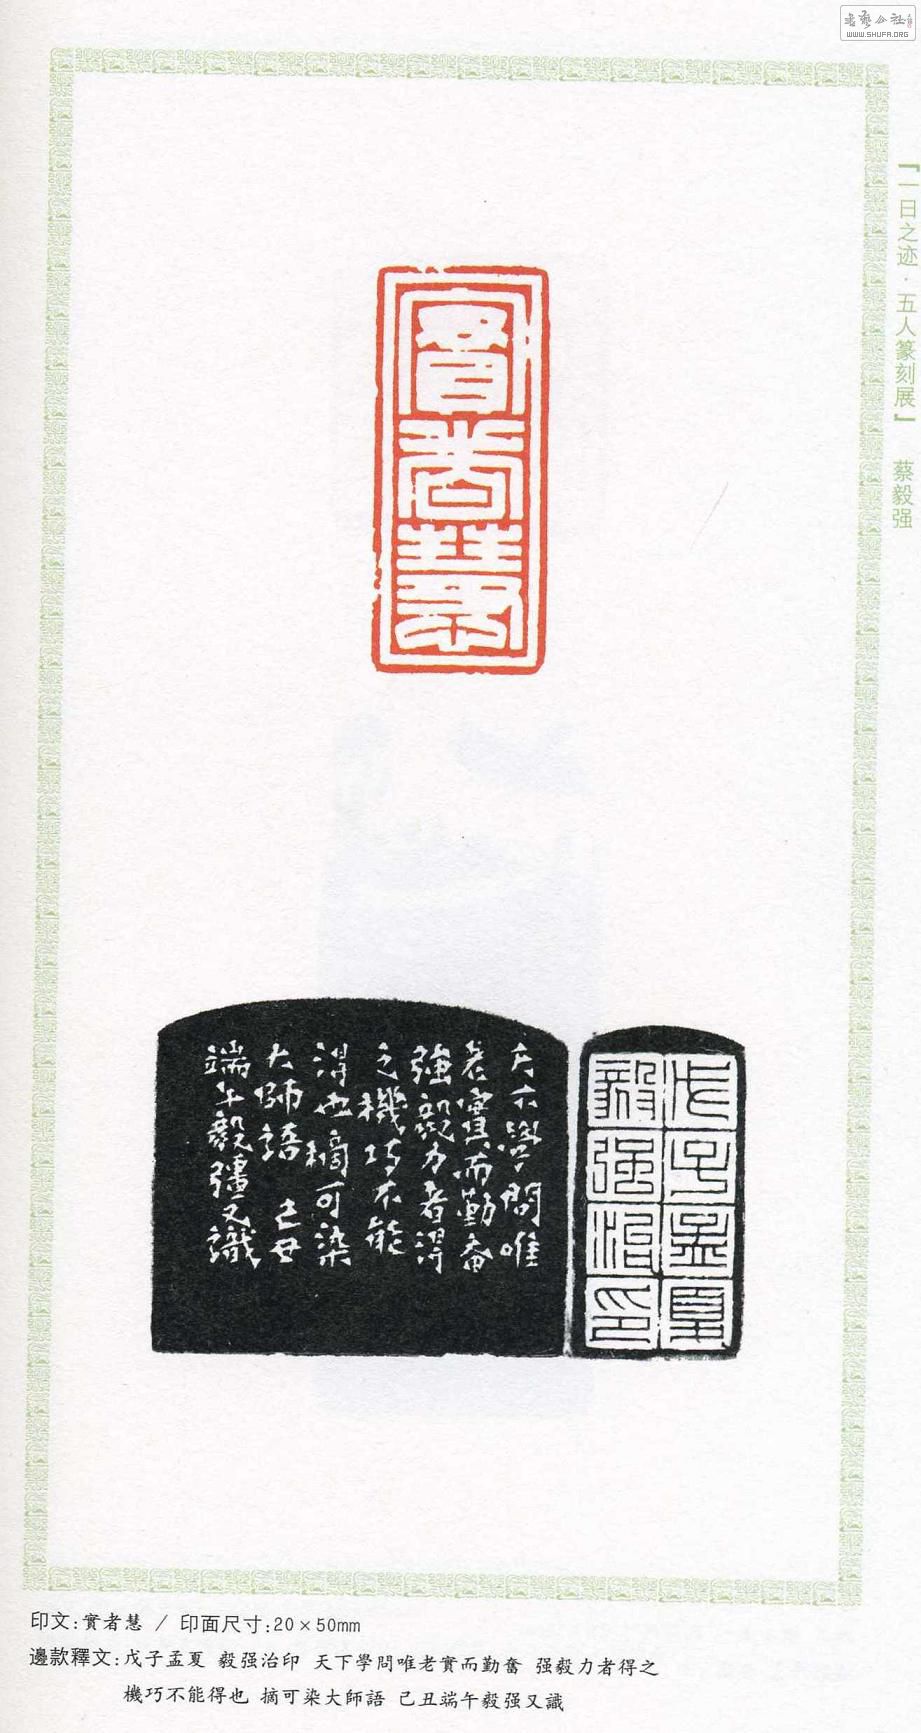 書藝公社
WWW.SHUFA.ORG
『一日之迹·五人篆刻展』 蔡毅强
實者慧
戊子孟夏
毅强治印
天下學問唯
老實而勤奮
強毅力者得
之機巧不能
得也摘可染
大師語 己丑
端午毅彊又識
印文:實者慧 / 印面尺寸:20×50mm
邊款釋文:戊子孟夏 毅强治印 天下學問唯老實而勤奮 强毅力者得之
機巧不能得也 摘可染大師語 己丑端午毅强又識